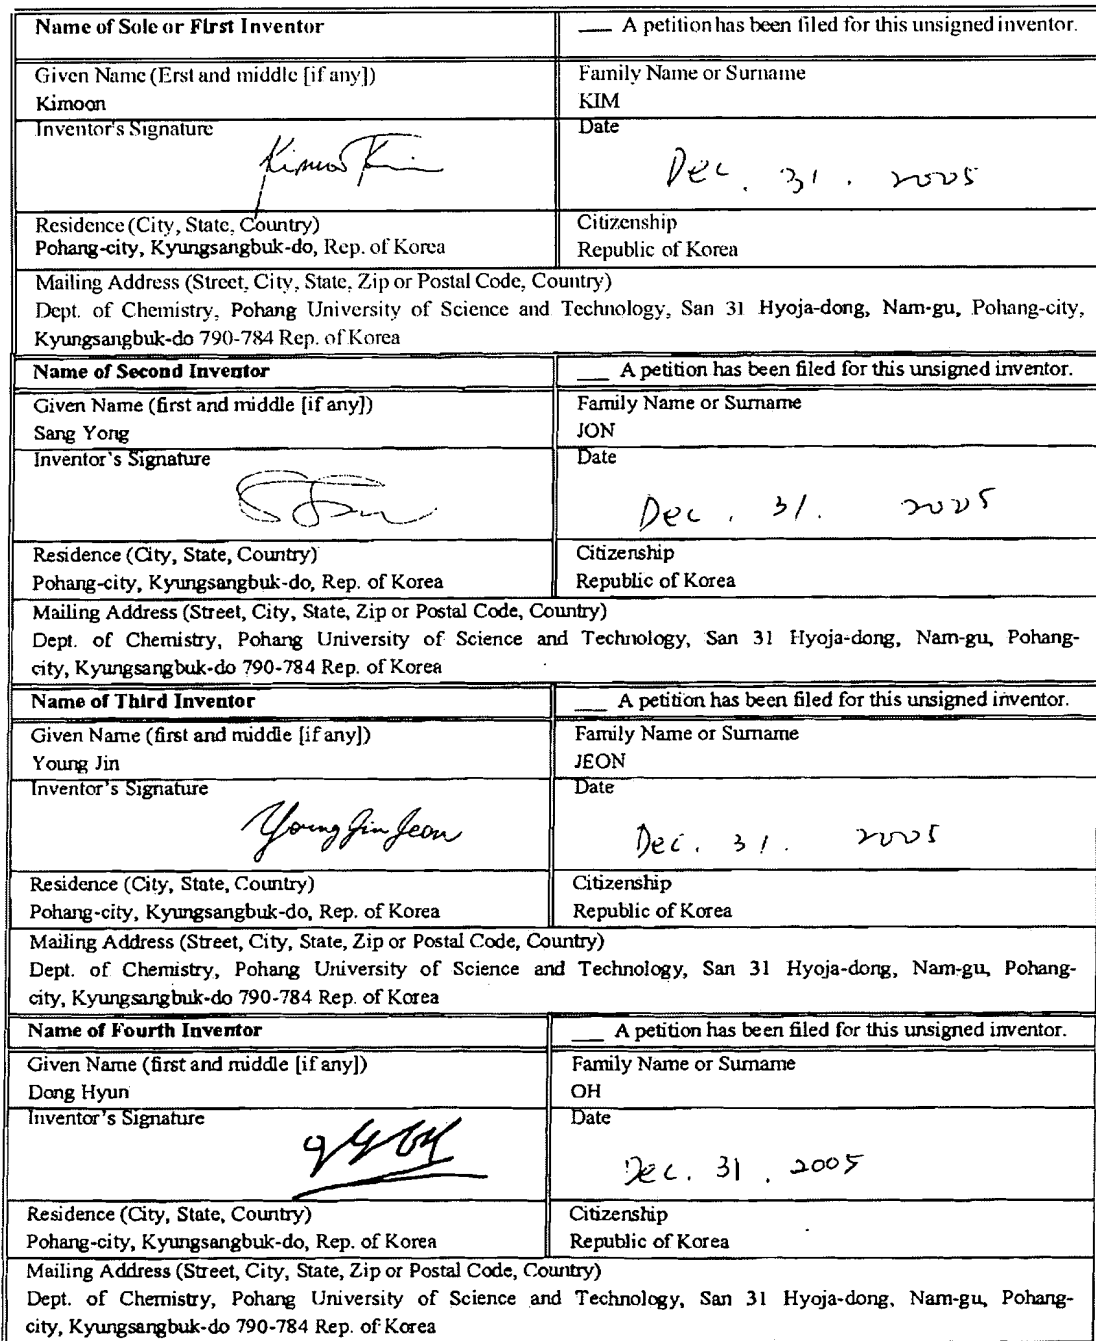 Name of Sole or First Inventor
___ A petition has been filed for this unsigned inventor.
Given Name (Erst and middle [if any])
Family Name or Surname
Kimoon
KIM
Inventor's Signature
Date
Kimoon Kim
Dec. 31. 2005
Residence (City, State, Country)
Citizenship
Pohang-city, Kyungsangbuk-do, Rep. of Korea
Republic of Korea
Mailing Address (Street, City, State, Zip or Postal Code, Country)
Dept. of Chemistry, Pohang University of Science and Technology, San 31 Hyoja-dong, Nam-gu, Pohang-city,
Kyungsangbuk-do 790-784 Rep. of Korea
Name of Second Inventor
___ A petition has been filed for this unsigned inventor.
Given Name (first and middle [if any])
Family Name or Surname
Sang Yong
JON
Inventor's Signature
Date
Dec. 31. 2005
Residence (City, State, Country)
Citizenship
Pohang-city, Kyungsangbuk-do, Rep. of Korea
Republic of Korea
Mailing Address (Street, City, State, Zip or Postal Code, Country)
Dept. of Chemistry, Pohang University of Science and Technology, San 31 Hyoja-dong, Nam-gu, Pohang-
city, Kyungsangbuk-do 790-784 Rep. of Korea
Name of Third Inventor
___ A petition has been filed for this unsigned inventor.
Given Name (first and middle [if any])
Family Name or Surname
Young Jin
JEON
Inventor's Signature
Date
Young Jin Jeon
Dec. 31. 2005
Residence (City, State, Country)
Citizenship
Pohang-city, Kyungsangbuk-do, Rep. of Korea
Republic of Korea
Mailing Address (Street, City, State, Zip or Postal Code, Country)
Dept. of Chemistry, Pohang University of Science and Technology, San 31 Hyoja-dong, Nam-gu, Pohang-
city, Kyungsangbuk-do 790-784 Rep. of Korea
Name of Fourth Inventor
___ A petition has been filed for this unsigned inventor.
Given Name (first and middle [if any])
Family Name or Surname
Dong Hyun
OH
Inventor's Signature
Date
Dec. 31. 2005
Residence (City, State, Country)
Citizenship
Pohang-city, Kyungsangbuk-do, Rep. of Korea
Republic of Korea
Mailing Address (Street, City, State, Zip or Postal Code, Country)
Dept. of Chemistry, Pohang University of Science and Technology, San 31 Hyoja-dong, Nam-gu, Pohang-
city, Kyungsangbuk-do 790-784 Rep. of Korea